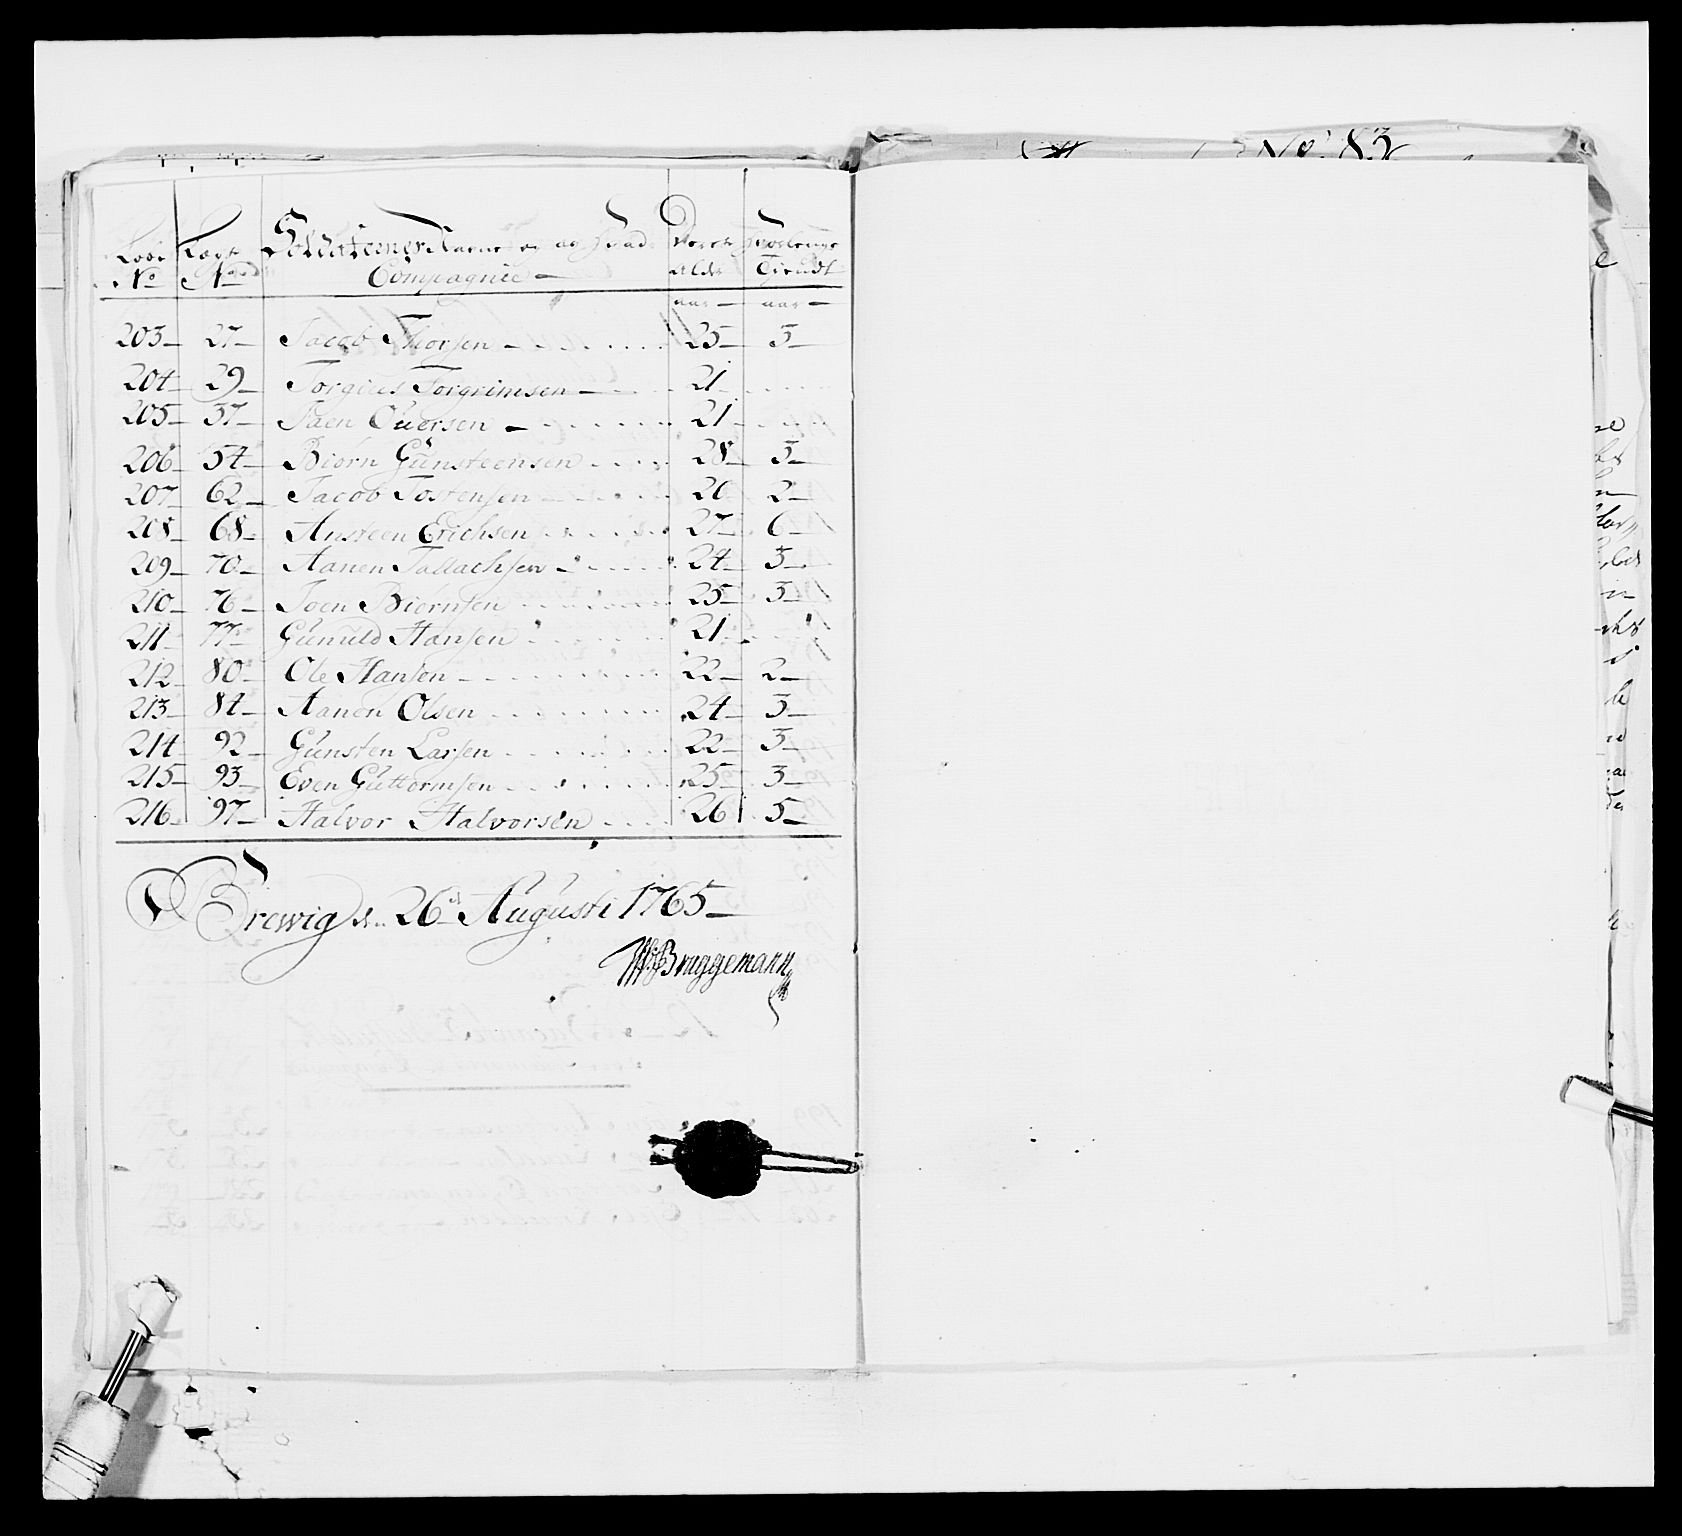 No. 83
Lobe Lægs Soldaternes Nafne og af hvad Deres Hvorlenge
No No Compagnie Alder Tiendt
aar aar
203 27 Jacob Thorsen 25 3
204 29 Torgius Torgrimsen 21
205 37 Paen Ouersen 21
206 54 Biørn Günsteensen 28 3
207 62 Jacob Tostensen 20 2
208 68 Ansteen Erichsen 27 6
209 70 Aanen Tallachsen 24 3
210 76 Joen Biørnsen 25 3
211 77 Gunuld Hansen 21
212 80 Ole Hansen 22 2
213 84 Aanon Olsen 24 3
214 92 Günsten Larsen 22 3
215 93 Even Güttormsen 25 3
216 97 Halvor Halvorsen 26 5
Brewig d. 26 Augusti 1765
Bruggemann